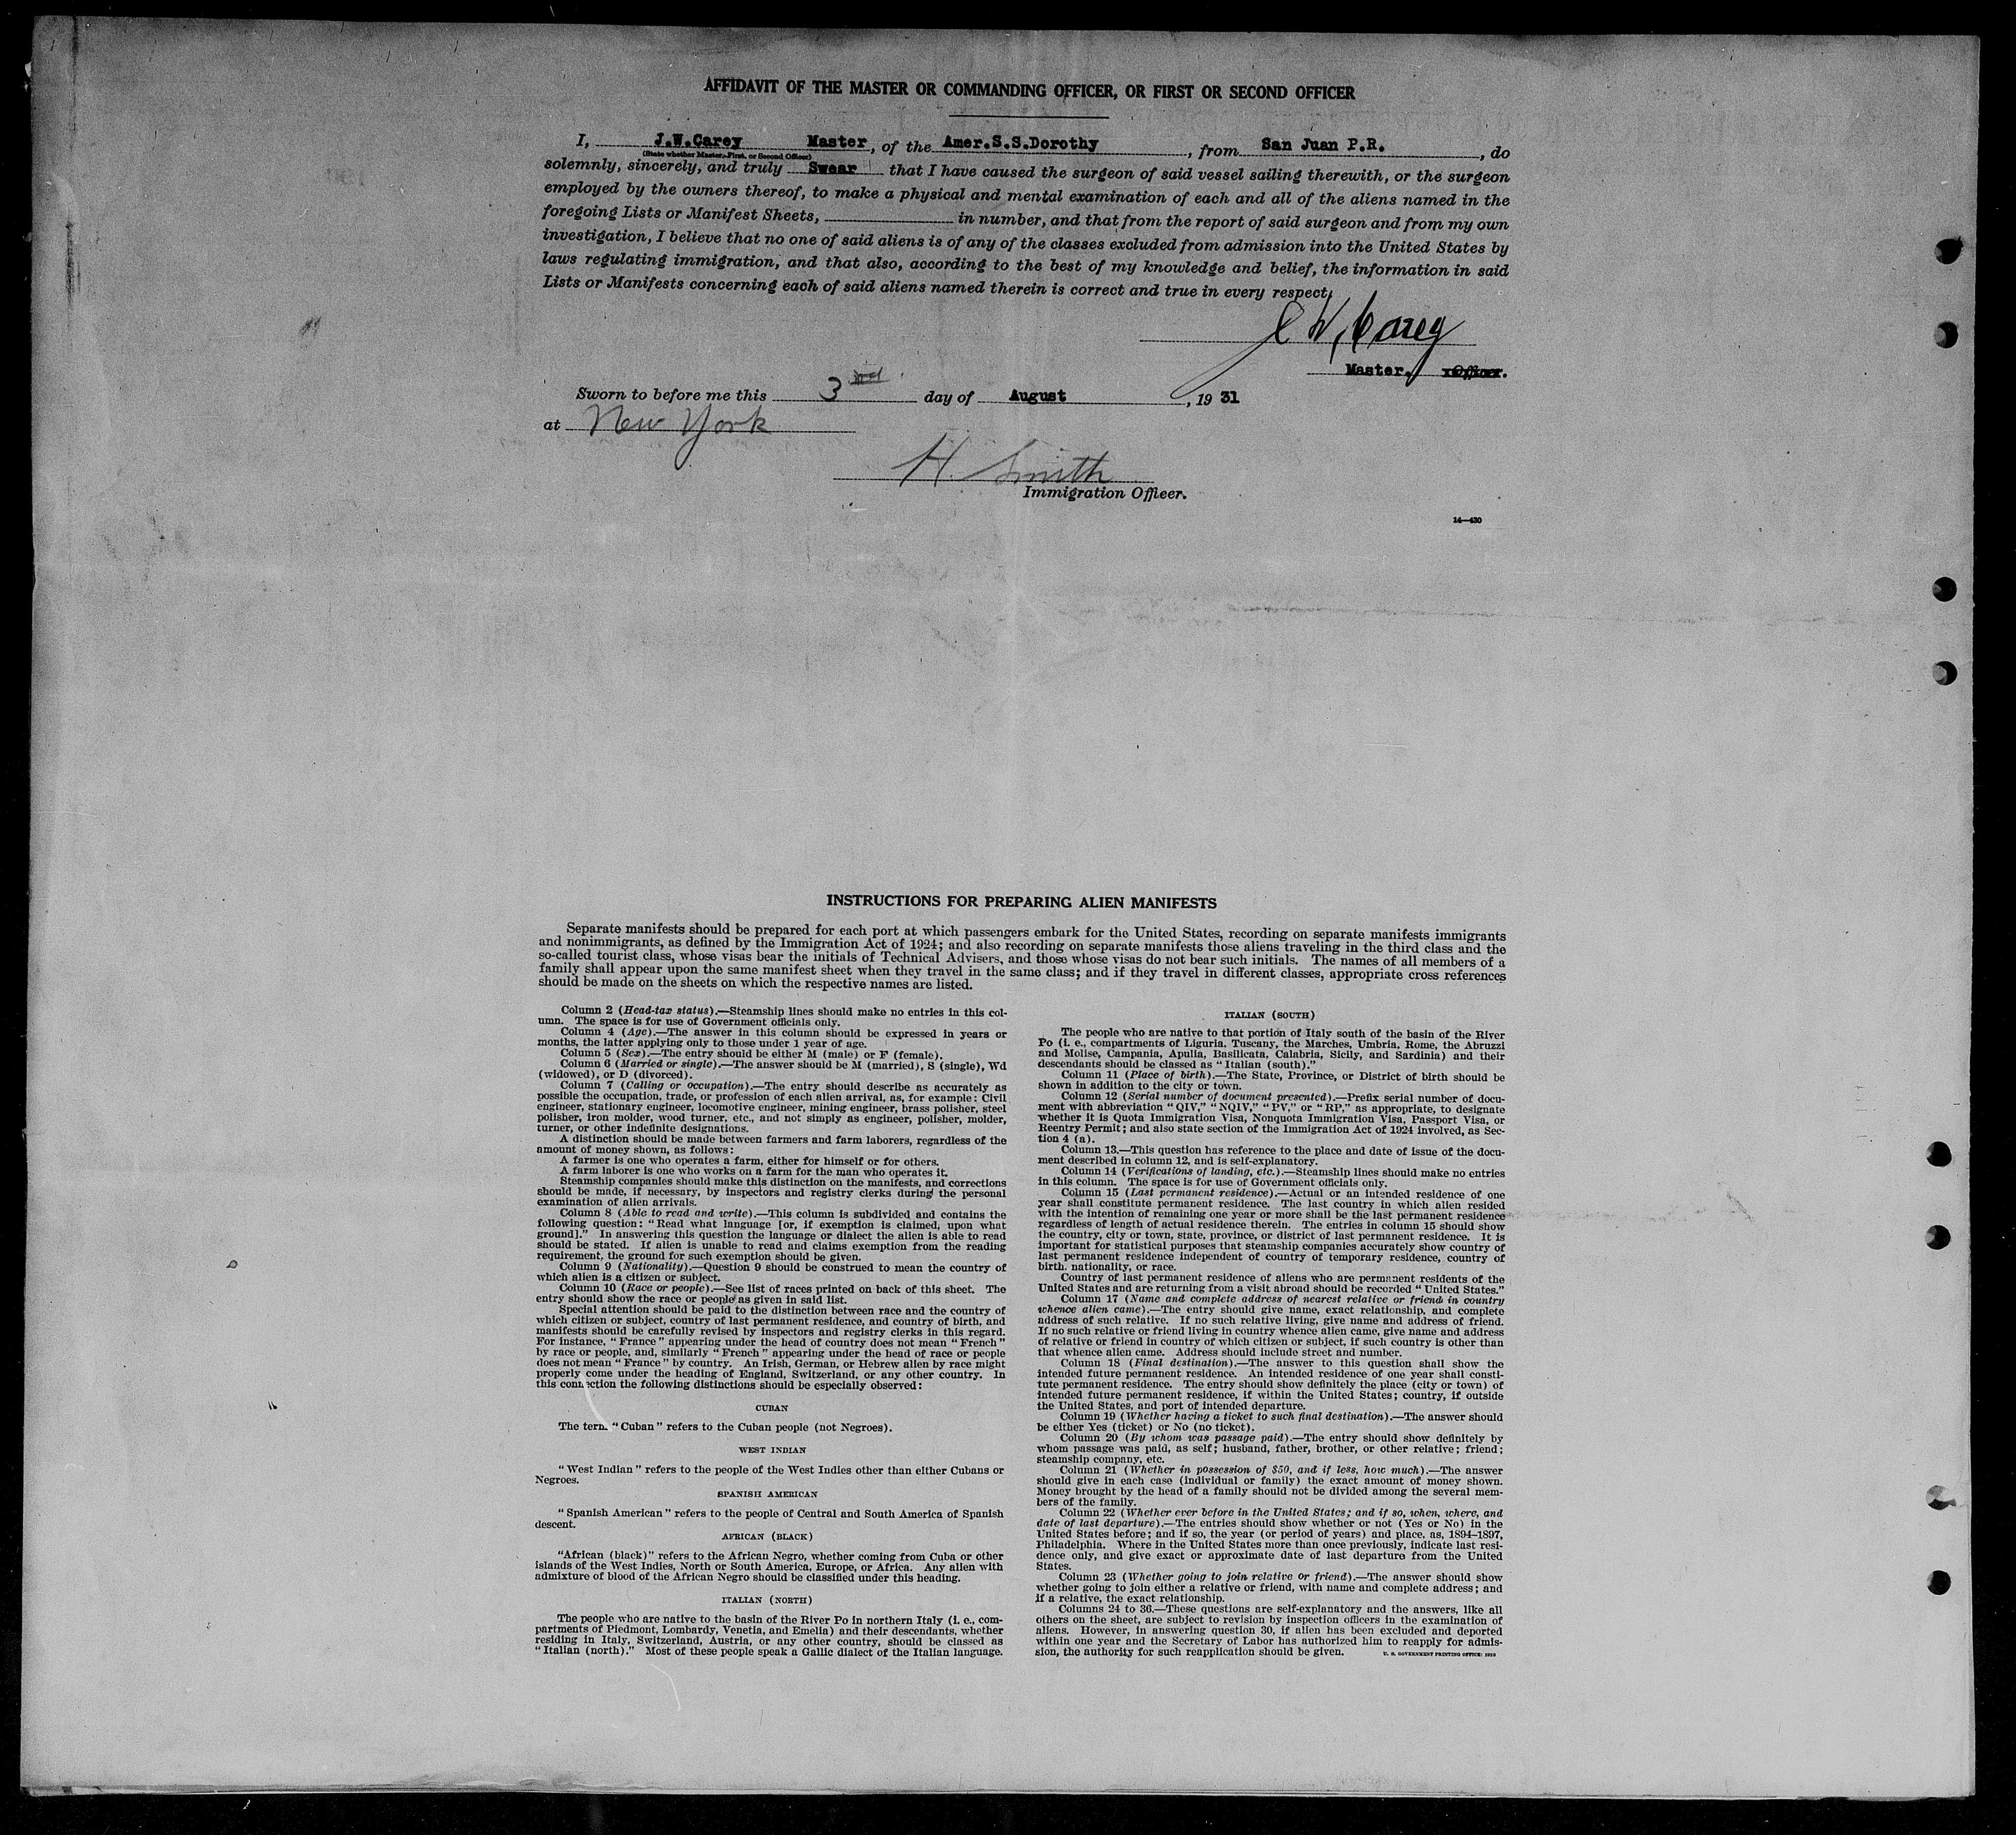 AFFIDAVIT OF THE MASTER OR COMMANDING OFFICER, OR FIRST OR SECOND OFFICER
I, J.W.Carey Master, of the Amer.S.S.Dorothy, from San Juan P.R., do
(State whether Master, First, or Second Officer)
solemnly, sincerely, and truly Swear that I have caused the surgeon of said vessel sailing therewith, or the surgeon
employed by the owners thereof, to make a physical and mental examination of each and all of the aliens named in the
foregoing Lists or Manifest Sheets, in number, and that from the report of said surgeon and from my own
investigation, I believe that no one of said aliens is of any of the classes excluded from admission into the United States by
laws regulating immigration, and that also, according to the best of my knowledge and belief, the information in said
Lists or Manifests concerning each of said aliens named therein is correct and true in every respect.
J W, Carey
Master. Officer.
Sworn to before me this 3 day of August, 19 31
at New York
H. Smith
Immigration Officer.
14—430
INSTRUCTIONS FOR PREPARING ALIEN MANIFESTS
Separate manifests should be prepared for each port at which passengers embark for the United States, recording on separate manifests immigrants
and nonimmigrants, as defined by the Immigration Act of 1924; and also recording on separate manifests those aliens traveling in the third class and the
so-called tourist class, whose visas bear the initials of Technical Advisers, and those whose visas do not bear such initials. The names of all members of a
family shall appear upon the same manifest sheet when they travel in the same class; and if they travel in different classes, appropriate cross references
should be made on the sheets on which the respective names are listed.
Column 2 (Head-tax status).—Steamship lines should make no entries in this col-
umn. The space is for use of Government officials only.
Column 4 (Age).—The answer in this column should be expressed in years or
months, the latter applying only to those under 1 year of age.
Column 5 (Sex).—The entry should be either M (male) or F (female).
Column 6 (Married or single).—The answer should be M (married), S (single), Wd
(widowed), or D (divorced).
Column 7 (Calling or occupation).—The entry should describe as accurately as
possible the occupation, trade, or profession of each alien arrival, as, for example: Civil
engineer, stationary engineer, locomotive engineer, mining engineer, brass polisher, steel
polisher, iron molder, wood turner, etc., and not simply as engineer, polisher, molder,
turner, or other indefinite designations.
A distinction should be made between farmers and farm laborers, regardless of the
amount of money shown, as follows:
A farmer is one who operates a farm, either for himself or for others.
A farm laborer is one who works on a farm for the man who operates it.
Steamship companies should make this distinction on the manifests, and corrections
should be made, if necessary, by inspectors and registry clerks during the personal
examination of alien arrivals.
Column 8 (Able to read and write).—This column is subdivided and contains the
following question: "Read what language [or, if exemption is claimed, upon what
ground]." In answering this question the language or dialect the alien is able to read
should be stated. If alien is unable to read and claims exemption from the reading
requirement, the ground for such exemption should be given.
Column 9 (Nationality).—Question 9 should be construed to mean the country of
which alien is a citizen or subject.
Column 10 (Race or people).—See list of races printed on back of this sheet. The
entry should show the race or people as given in said list.
Special attention should be paid to the distinction between race and the country of
which citizen or subject, country of last permanent residence, and country of birth, and
manifests should be carefully revised by inspectors and registry clerks in this regard.
For instance, "France" appearing under the head of country does not mean "French"
by race or people, and, similarly "French" appearing under the head of race or people
does not mean "France" by country. An Irish, German, or Hebrew alien by race might
properly come under the heading of England, Switzerland, or any other country. In
this connection the following distinctions should be especially observed:
CUBAN
The term "Cuban" refers to the Cuban people (not Negroes).
WEST INDIAN
"West Indian" refers to the people of the West Indies other than either Cubans or
Negroes.
SPANISH AMERICAN
"Spanish American" refers to the people of Central and South America of Spanish
descent.
AFRICAN (BLACK)
"African (black)" refers to the African Negro, whether coming from Cuba or other
islands of the West Indies, North or South America, Europe, or Africa. Any alien with
admixture of blood of the African Negro should be classified under this heading.
ITALIAN (NORTH)
The people who are native to the basin of the River Po in northern Italy (i. e., com-
partments of Piedmont, Lombardy, Venetia, and Emelia) and their descendants, whether
residing in Italy, Switzerland, Austria, or any other country, should be classed as
"Italian (north)." Most of these people speak a Gallic dialect of the Italian language.
ITALIAN (SOUTH)
The people who are native to that portion of Italy south of the basin of the River
Po (i. e., compartments of Liguria, Tuscany, the Marches, Umbria, Rome, the Abruzzi
and Molise, Campania, Apulia, Basilicata, Calabria, Sicily, and Sardinia) and their
descendants should be classed as "Italian (south)."
Column 11 (Place of birth).—The State, Province, or District of birth should be
shown in addition to the city or town.
Column 12 (Serial number of document presented).—Prefix serial number of docu-
ment with abbreviation "QIV," "NQIV," "PV," or "RP," as appropriate, to designate
whether it is Quota Immigration Visa, Nonquota Immigration Visa, Passport Visa, or
Reentry Permit; and also state section of the Immigration Act of 1924 involved, as Sec-
tion 4 (a).
Column 13.—This question has reference to the place and date of issue of the docu-
ment described in column 12, and is self-explanatory.
Column 14 (Verifications of landing, etc.).—Steamship lines should make no entries
in this column. The space is for use of Government officials only.
Column 15 (Last permanent residence).—Actual or an intended residence of one
year shall constitute permanent residence. The last country in which alien resided
with the intention of remaining one year or more shall be the last permanent residence
regardless of length of actual residence therein. The entries in column 15 should show
the country, city or town, state, province, or district of last permanent residence. It is
important for statistical purposes that steamship companies accurately show country of
last permanent residence independent of country of temporary residence, country of
birth, nationality, or race.
Country of last permanent residence of aliens who are permanent residents of the
United States and are returning from a visit abroad should be recorded "United States."
Column 17 (Name and complete address of nearest relative or friend in country
whence alien came).—The entry should give name, exact relationship, and complete
address of such relative. If no such relative living, give name and address of friend.
If no such relative or friend living in country whence alien came, give name and address
of relative or friend in country of which citizen or subject, if such country is other than
that whence alien came. Address should include street and number.
Column 18 (Final destination).—The answer to this question shall show the
intended future permanent residence. An intended residence of one year shall consti-
tute permanent residence. The entry should show definitely the place (city or town) of
intended future permanent residence, if within the United States; country, if outside
the United States, and port of intended departure.
Column 19 (Whether having a ticket to such final destination).—The answer should
be either Yes (ticket) or No (no ticket).
Column 20 (By whom was passage paid).—The entry should show definitely by
whom passage was paid, as self; husband, father, brother, or other relative; friend;
steamship company, etc.
Column 21 (Whether in possession of $50, and if less, how much).—The answer
should give in each case (individual or family) the exact amount of money shown.
Money brought by the head of a family should not be divided among the several mem-
bers of the family.
Column 22 (Whether ever before in the United States; and if so, when, where, and
date of last departure).—The entries should show whether or not (Yes or No) in the
United States before; and if so, the year (or period of years) and place, as, 1894-1897,
Philadelphia. Where in the United States more than once previously, indicate last resi-
dence only, and give exact or approximate date of last departure from the United
States.
Column 23 (Whether going to join relative or friend).—The answer should show
whether going to join either a relative or friend, with name and complete address; and
if a relative, the exact relationship.
Columns 24 to 36.—These questions are self-explanatory and the answers, like all
others on the sheet, are subject to revision by inspection officers in the examination of
aliens. However, in answering question 30, if alien has been excluded and deported
within one year and the Secretary of Labor has authorized him to reapply for admis-
sion, the authority for such reapplication should be given.
U. S. GOVERNMENT PRINTING OFFICE: